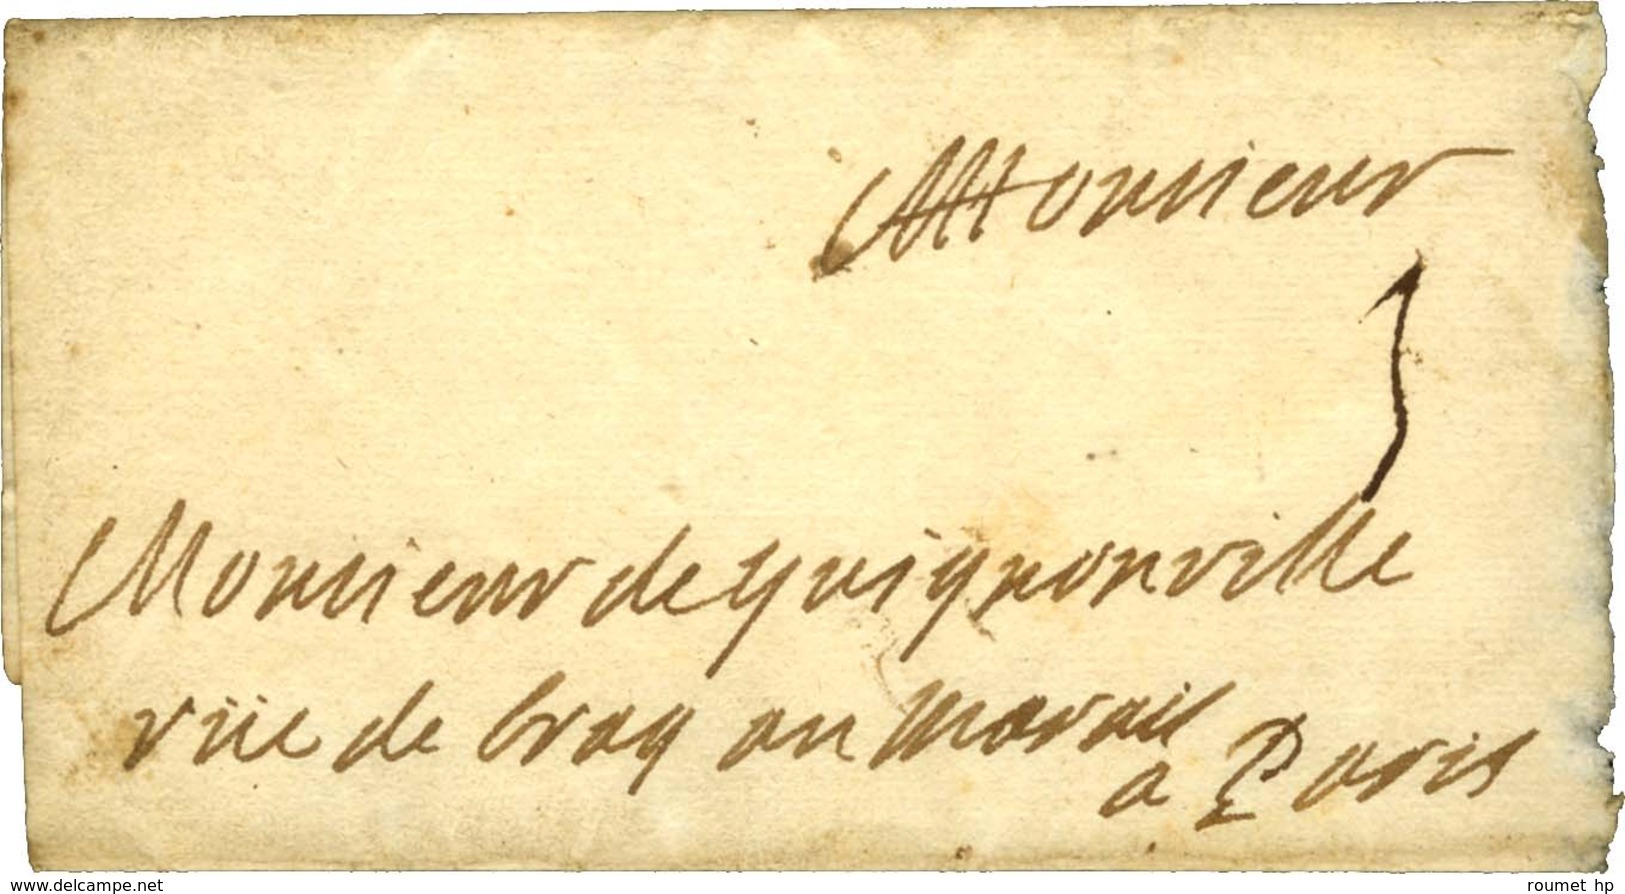 Monsieur
Monsieur de guignonville
rüe de braq au marais
a Paris
www.delcampe.net
roumet hp